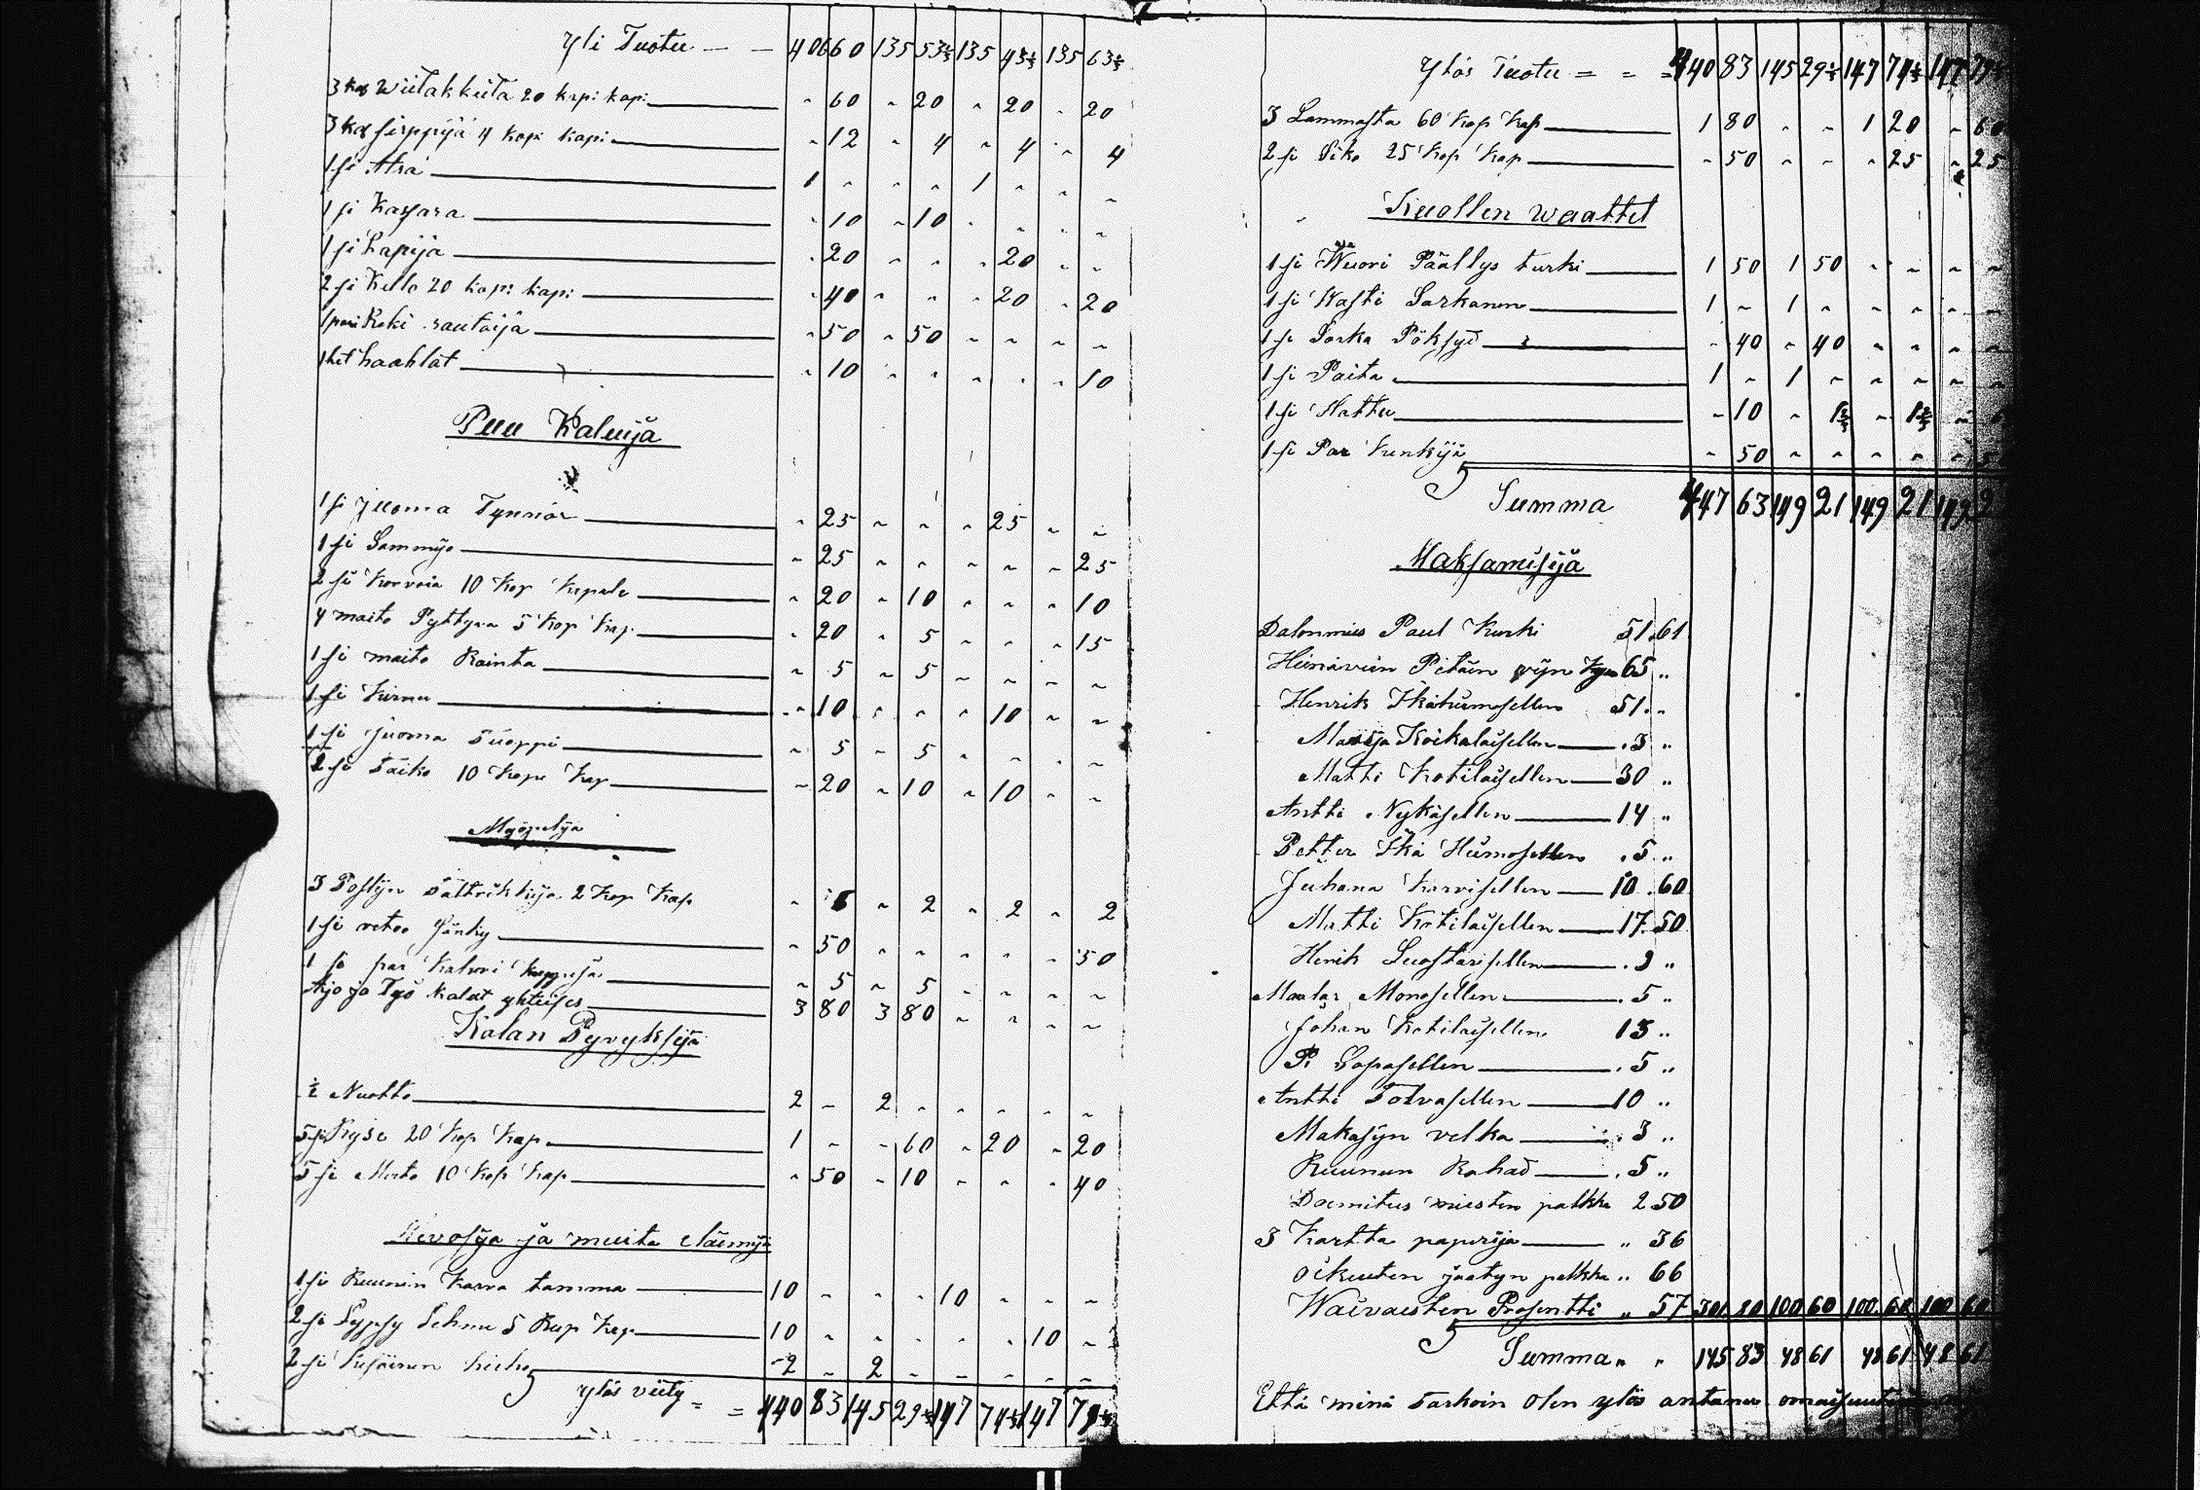 Yli Tuotu — — 406 60 135 53⅓ 135 43⅓ 135 63⅓
3 kap wiitakkeita 20 kapi kapi " 60 " 20 " 20 " 20
3 kap sirppijä 4 kopi kapi " 12 " 4 " 4 " 4
1 si Atra 1 " " " 1 " " "
1 si Kassara " 10 " 10 " " " "
1 si Lapija " 20 " " " 20 " "
2 si Kello 20 kapi kapi " 40 " " " 20 " 20
1 pari Reki rautoija " 50 " 50 " " " "
1 haahlat " 10 " " " " " 10
Puu Kaluija
1 si Juoma Tynnör " 25 " " " 25 " "
1 si Sammijo " 25 " " " " " 25
2 si Korvoia 10 Kop " 20 " 10 " " " 10
4 maito Pyttyää 5 Kop Kap " 20 " 5 " " " 15
1 si maito Rainta " 5 " 5 " " " "
1 si Kirnu " 10 " " " 10 " "
1 si juoma Tuoppi " 5 " 5 " " " "
2 si Saiko 10 Kope Kap " 20 " 10 " 10 " "
3 Poslijn 2 Kop Kap " 6 " 2 " 2 " 2
1 si vetoo Sänky " 50 " " " " " 50
1 si par Kahvi kuppija " 5 " 5 " " " "
Ajo ja Työ kalut yhteises 3 80 3 80 " " " "
Kalan Pyvyksijä
½ Nuotto 2 " 2 " " " " "
5 si Ryse 20 Kop Kap 1 " " 60 " 20 " 20
5 si Merto 10 Kop Kap " 50 " 10 " " " 40
Hevosija ja muita eläimijä
1 si Ruunin Karva tamma 10 " " " 10 " " "
2 si Lypsy Lehmä 5 Rup Kap 10 " " " " " 10 "
2 si 2 " 2 " " " " "
Ylös viety = = 440 83 145 29⅓ 147 74⅓ 147 79⅓
Ylös Tuotu = = = 440 83 145 29⅓ 147 74⅓ 147 79⅓
3 Lammasta 60 Kop Kap 1 80 " " 1 20 " 60
2 si Sika 25 Kop Kap " 50 " " " 25 " 25
Kuollen waattet
1 si Wuori Päällys turki 1 50 1 50 " " " "
1 si Kasti Sarkanen 1 " 1 " " " " "
1 si Sarka Pöksyd " 40 " 40 " " " "
1 si Paita 1 " 1 " " " " "
1 si Hattu " 10 "
1 si Par Kenkijä " 50 " " " " "
Summa 447 63 149 21 149 21 149 2
Maksamisija
Dalonmies Paul Kurki 51.61
Hiinävein Pitäin 65 "
Henrik Ikäheimosellen 51 "
Marija Koikalaisellen 3 "
Matti Kotilaisellen 30 "
Antti Nykäsellen 14 "
Petter Ikä Heimosellen 5 "
Juhana Karvisellen 10.60
Matti Kotilaisellen 17.50
Henrik Luostarisellen 3 "
Maalar Monosellen 5 "
Johan Kotilaisellen 13 "
P. Sapasellen 5 "
Antti Tolvasellen 10 "
Makasijn velka 3 "
Ruunun Rahad 5 "
Doemitus miesten palkka 2 50
3 Kartta paperija " 36
Oikeuten jaatyn palkka " 66
Waivaisten Prosentti " 57 301 80 100 60 100 60 100 60
Summa " " 145 83 48 61 48 61 48 61
Että minä tarkoin olen ylös antanu